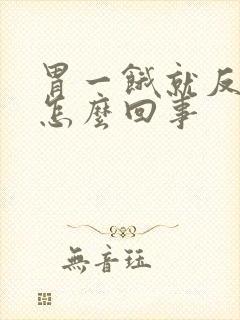 胃一餓就反
怎麼回事
無音珏